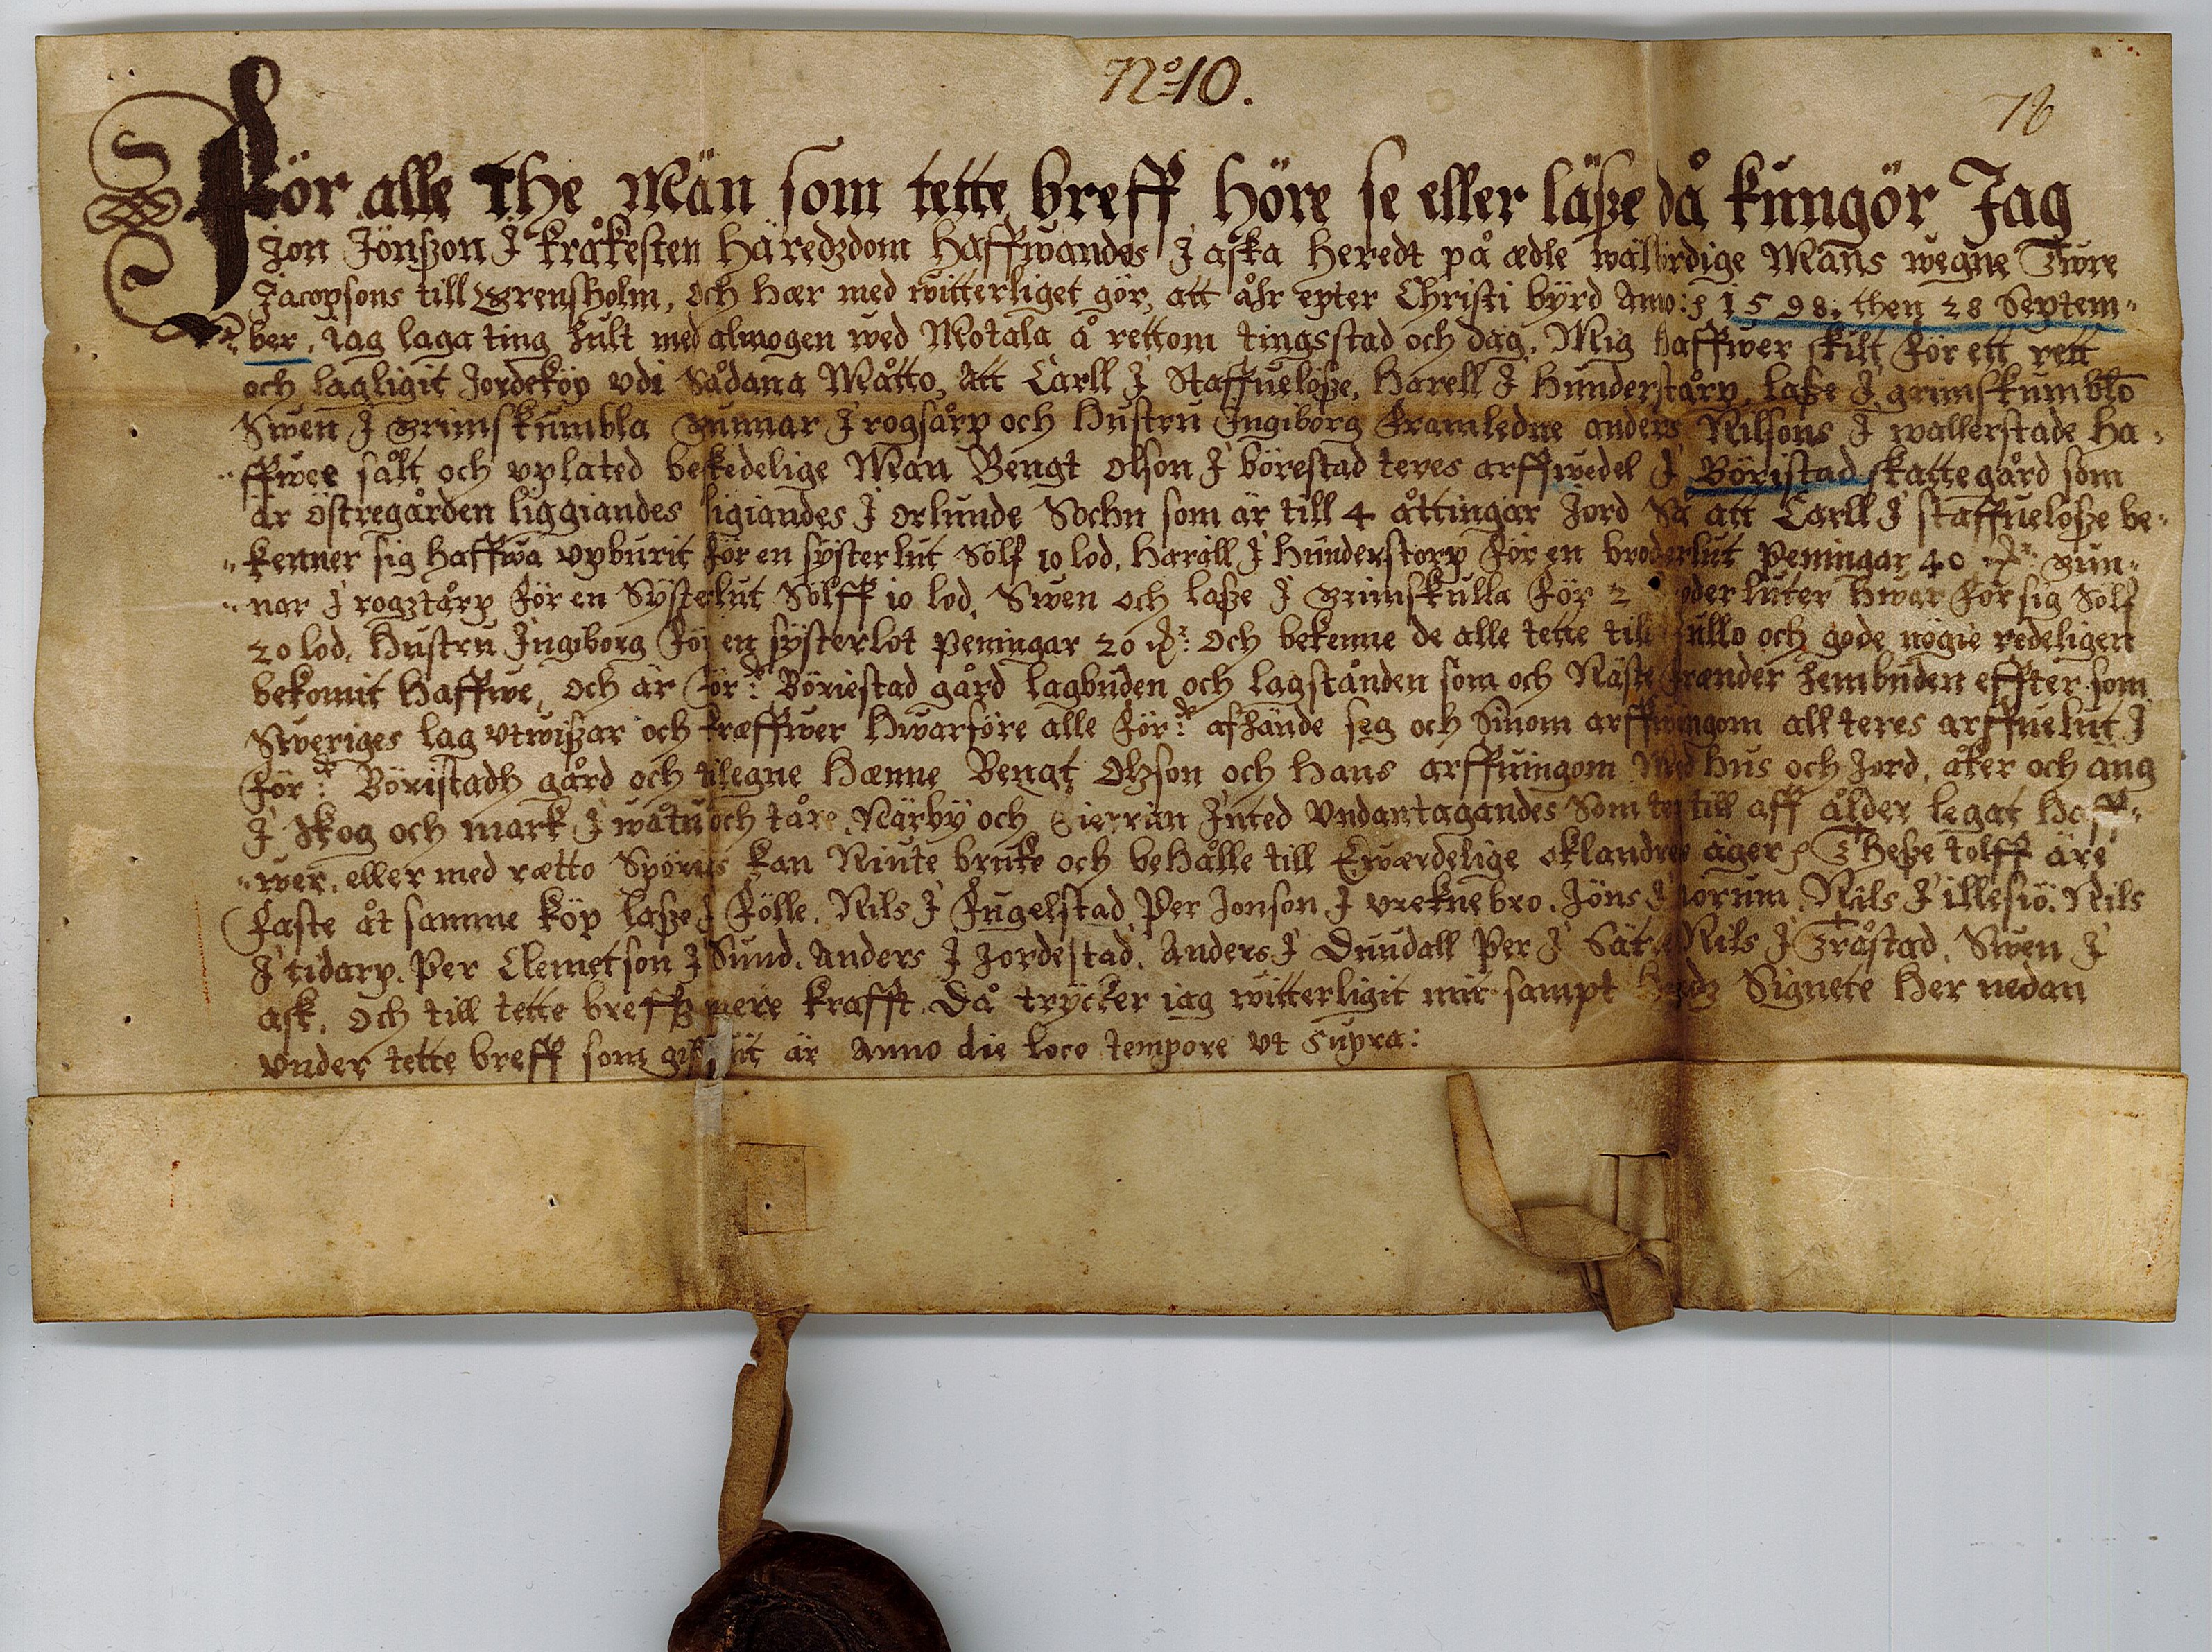 No 10.
78
För alle The Män som tette breff höre se eller läße då kungör Jag
Jon Jönßon J kråkesten häredzdom haffwandes J aska heredt på ædle wälbirdige Mans wegne Twre
Jacopsons till Grensholm, och hær med witterliget gör, att åhr epter Christi byrd Anno: 1598. then 28 Septem-
ber, Jag laga ting hult med almogen wed Motala å rettom tingsstad och dag, Mig haffwer skilt för ett rett
och lagligit Jordeköp vdi sådana Måtto, Att Carll J Staffueløße, Harell J Hunderstårp, laße J grimskumblo
Swen J Grimskumbla Gunnar J rogsårp och Hustru Ingiborg framledne anders Nilsons J wallerstade ha-
ffwer sålt och vplated beskedelige Man Bengt olson J börestad teres arffwedel J Böristad skattegård som
är östregården liggiandes ligiandes J orlunde Sochn som är till 4 åttingar Jord Så att Carll J staffueløße be-
kenner sig haffwa vpburit för en systerlut Sölf 10 lod, Harall J hunderstorp för en broderlut peningar 40 Gun-
nar J rogztårp för en Systerlut Sölff 10 lod, Swen och laße J Grimskulla för 2 oder luter hwar för sig Sölf
20 lod, Hustru Ingiborg för en systerlot peningar 20 Och bekenne de alle tette till fullo och gode nögie redeligen
bekomit haffwe, och är för:de Böriestad gård lagbuden och lagstånden som och Näste frænder hembuden effter som
Sweriges lag vtwißar och kræffwer hwarföre alle för:de afhände seg och Sinom arffwingom all teres arffuelut J
för:de Böristadh gård och tilegne hænne Bengt Olzson och hans arffuingom Med hus och Jord, åker och äng
J skog och mark J wåtu och tåre, Närby och fierran Inted Vndantagandes Som ter till aff ålder legat haff-
wer, eller med rætto Spöries kan Niute bruke och behålle till Ewærdelige oklandret äger Theße tolff äre
faste åt samme köp laße J fölle, Nils J Fugelstad Per Jonson J vreknebro, Jöns J norum, Nils J illesiö, Nils
J tidarp, Per Clemetson J Sund, Anders J Jordestad, Anders J Duudall Per J Sätre Nils J Tråstad, Swen J
ask, Och till tette breffz mere krafft då trycker iag witterligit mit sampt Hredz Signete her nedan
vnder tette breff som giffuit är Anno die loco tempore vt supra: